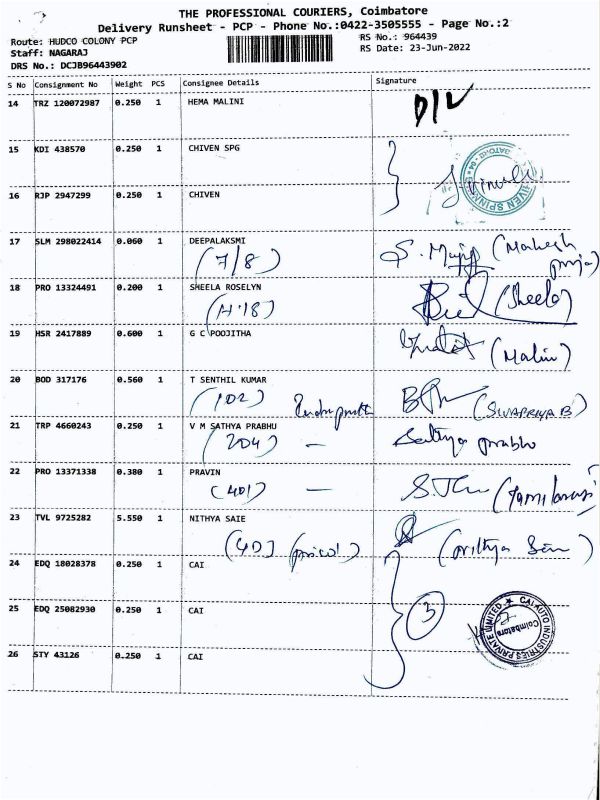 THE PROFESSIONAL COURIERS, Coimbatore
Delivery Runsheet - PCP - Phone No.:0422-3505555 - Page No.:2
Route: HUDCO COLONY PCP
RS No.: 964439
Staff: NAGARAJ
RS Date: 23-Jun-2022
DRS No.: DCJB96443902
S No Consignment No Weight PCS Consignee Details Signature
14 TRZ 120072987 0.250 1 HEMA MALINI
D/L
15 KDI 438570 0.250 1 CHIVEN SPG
16 RJP 2947299 0.250 1 CHIVEN
17 SLM 298022414 0.060 1 DEEPALAKSMI
(7/8)
18 PRO 13324491 0.200 1 SHEELA ROSELYN
(Sheela)
19 HSR 2417889 0.600 1 G C POOJITHA
(Malini)
20 BOD 317176 0.560 1 T SENTHIL KUMAR
(102) (SWAPRIYA B)
21 TRP 4660243 0.250 1 V M SATHYA PRABHU
(204) — Sathya prabhu
22 PRO 13371338 0.380 1 PRAVIN
(401) —
23 TVL 9725282 5.550 1 NITHYA SAIE
24 EDQ 18028378 0.250 1 CAI
25 EDQ 25082930 0.250 1 CAI
3
CAI AUTO INDUSTRIES PRIVATE LIMITED
Coimbatore
26 STY 43126 0.250 1 CAI